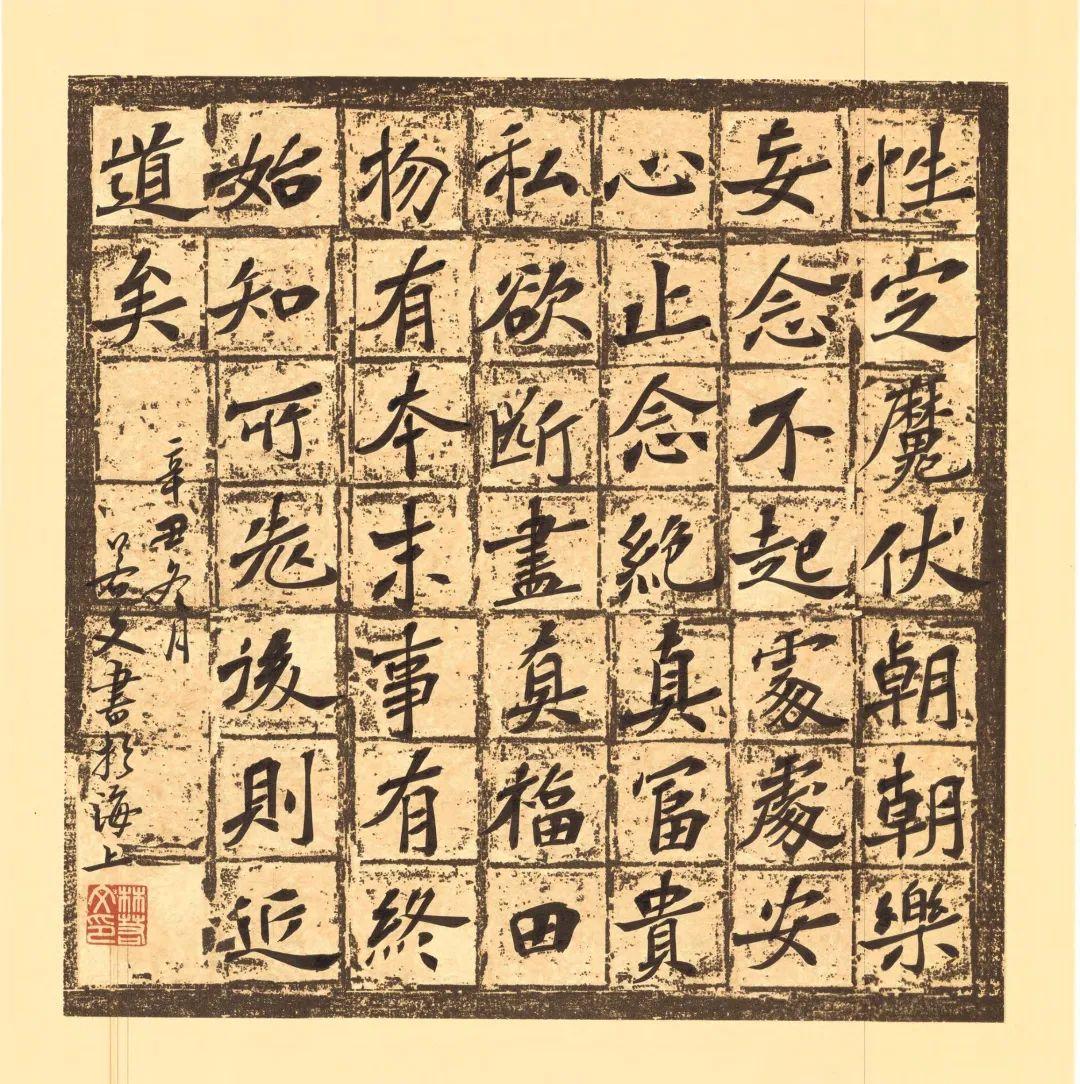 性定魔伏朝朝樂
妄念不起處處安
心止念絕真富貴
私欲斷盡真福田
物有本末事有終
始知所先後則近
道矣
辛丑冬月
若文書於海上
林若文印